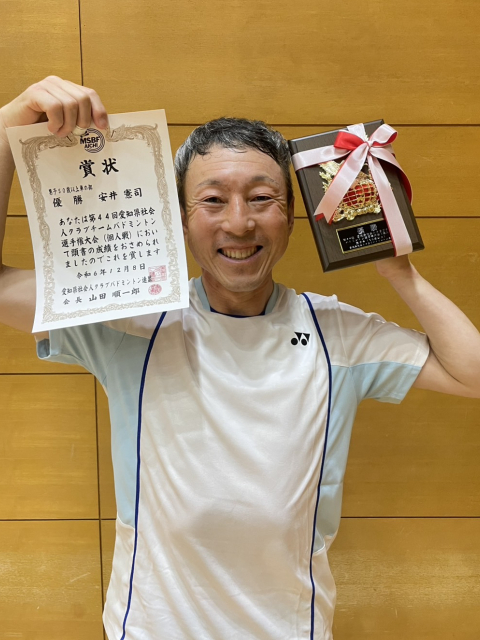 MSBF
AICHI
賞状
男子50歳以上単の部
優勝 安井憲司
あなたは第44回愛知県社会
人クラブチームバドミントン
選手権大会(個人戦)におい
て頭書の成績をおさめられ
ましたのでこれを賞します
令和6年12月8日
愛知県社会人クラブバドミントン連盟
会長 山田順一郎
YONEX
優勝